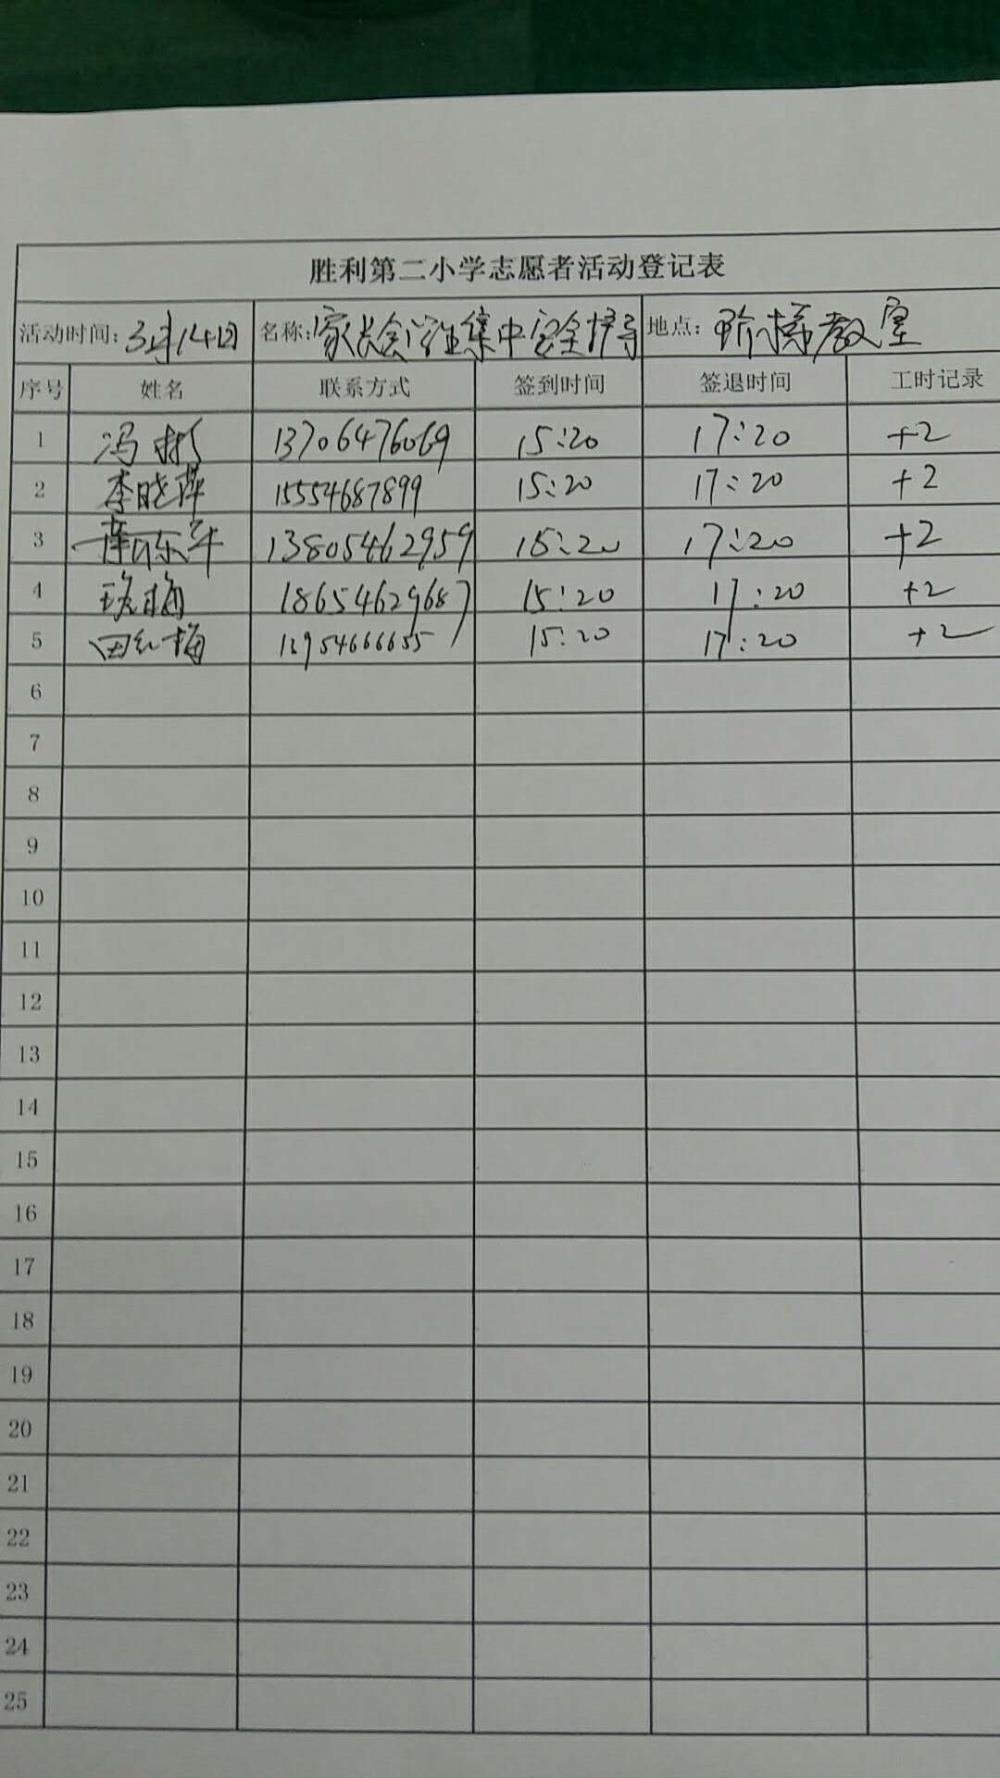 胜利第二小学志愿者活动登记表
活动时间: 3月14日 名称: 家长会学生集中安全护导 地点: 阶梯教室
序号 姓名 联系方式 签到时间 签退时间 工时记录
1 冯彬 13706476069 15:20 17:20 +2
2 李晓萍 15554687899 15:20 17:20 +2
3 13805462959 15:20 17:20 +2
4 18654629687 15:20 17:20 +2
5 田红梅 15:20 17:20 +2
6
7
8
9
10
11
12
13
14
15
16
17
18
19
20
21
22
23
24
25